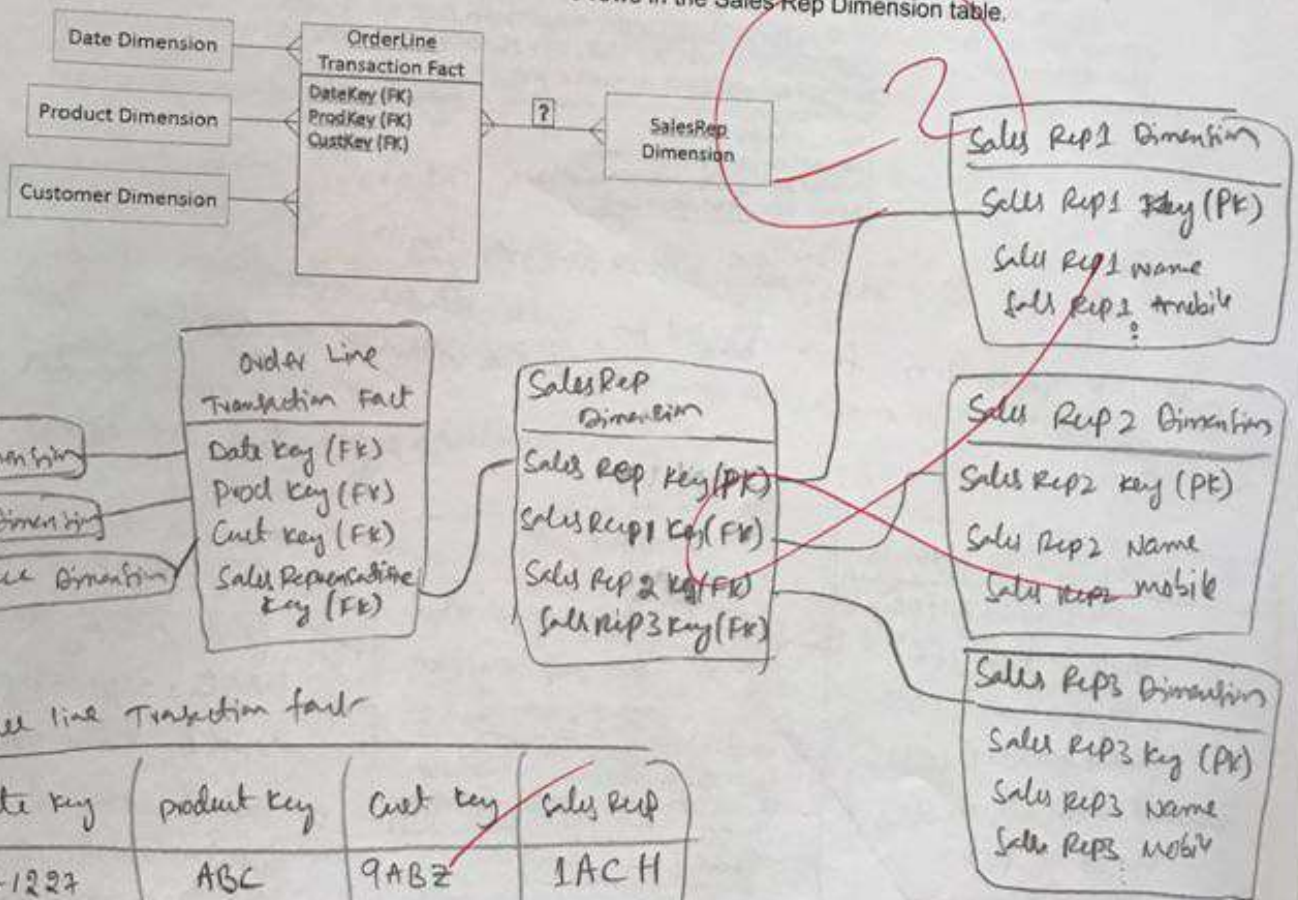 in the Sales Rep Dimension table.
Date Dimension
Product Dimension
Customer Dimension
OrderLine
Transaction Fact
DateKey (FK)
ProdKey (FK)
CustKey (FK)
?
SalesRep
Dimension
Sales Rep1 Dimension
Sales Rep1 Key (PK)
Sales Rep1 Name
Sales Rep1
Order Line
Transaction Fact
Date Key (FK)
Prod Key (FK)
Cust Key (FK)
Sales Representative
Key (FK)
Sales Rep
Dimension
Sales Rep Key (PK)
Sales Rep1 Key (FK)
Sales Rep 2 Key (FK)
Sales Rep3 Key (FK)
Sales Rep 2 Dimension
Sales Rep2 Key (PK)
Sales Rep2 Name
Sales Rep2 Mobile
Sales Rep3 Dimension
Sales Rep3 Key (PK)
Sales Rep3 Name
Sales Rep3 Mobile
Dimension
line fact
key product key Cust key Sales Rep
-1227 ABC 9ABZ 1ACH